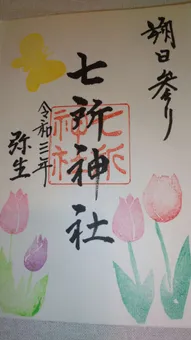 朔日参り
七所神社
七所神社
令和三年
弥生